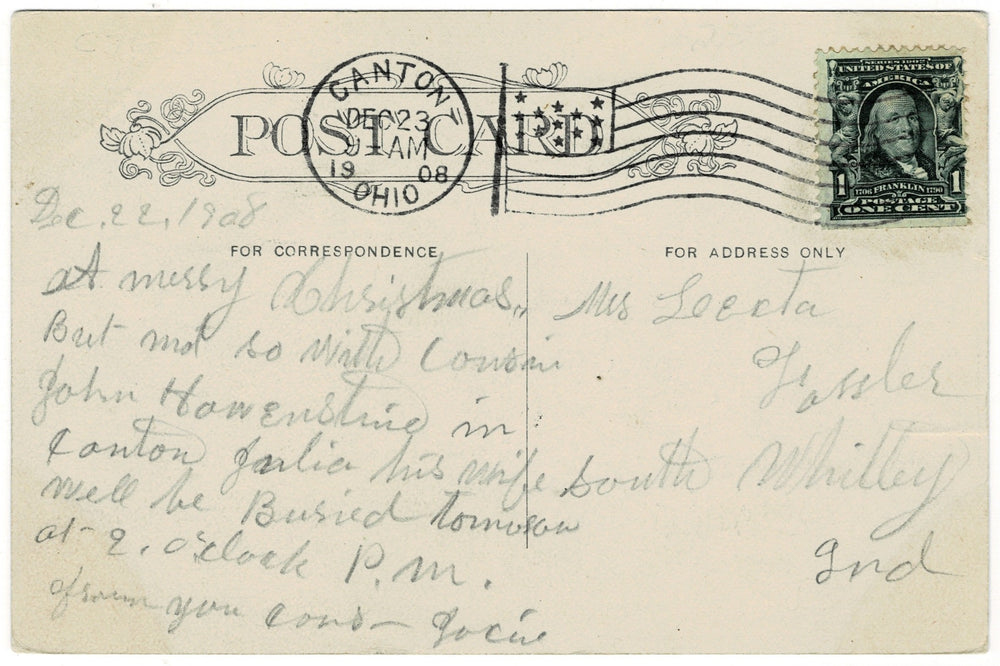 POST CARD
CANTON
DEC 23
AM
19 08
OHIO
SERIES 1902
UNITED STATES OF
AMERICA
1 1706 FRANKLIN 1790 1
POSTAGE
ONE CENT
Dec. 22, 1908
FOR CORRESPONDENCE
A merry Christmas,
But not so with Cousin
John Howenstine in
Canton Julia his wife
will be Buried tomorow
at 2. o'clock P.M.
from you cous –
FOR ADDRESS ONLY
Mrs
Fossler
South Whitley
Ind